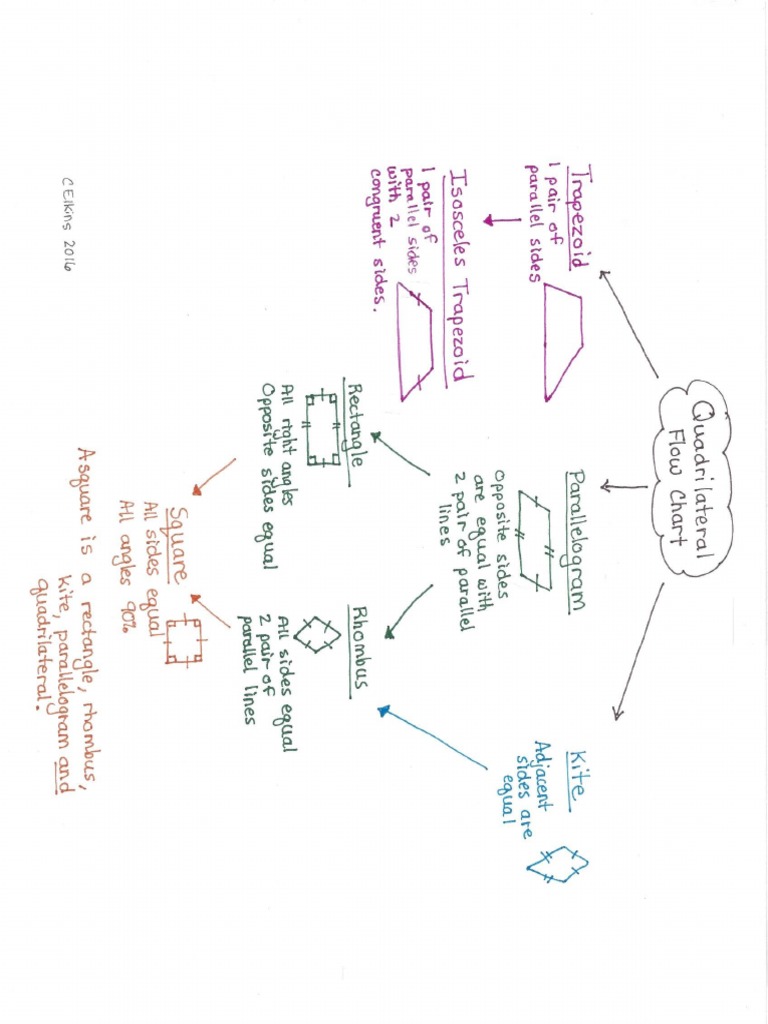 Quadrilateral
Flow Chart
Trapezoid
1 pair of
parallel sides
Isosceles Trapezoid
1 pair of
parallel sides
with 2
congruent sides.
Parallelogram
Opposite sides
are equal with
2 pair of parallel
lines
Kite
Adjacent
sides are
equal
Rectangle
All right angles
Opposite sides equal
Rhombus
All sides equal
2 pair of
parallel lines
Square
All sides equal
All angles 90%
A square is a rectangle, rhombus,
kite, parallelogram and
quadrilateral.
C Elkins 2016